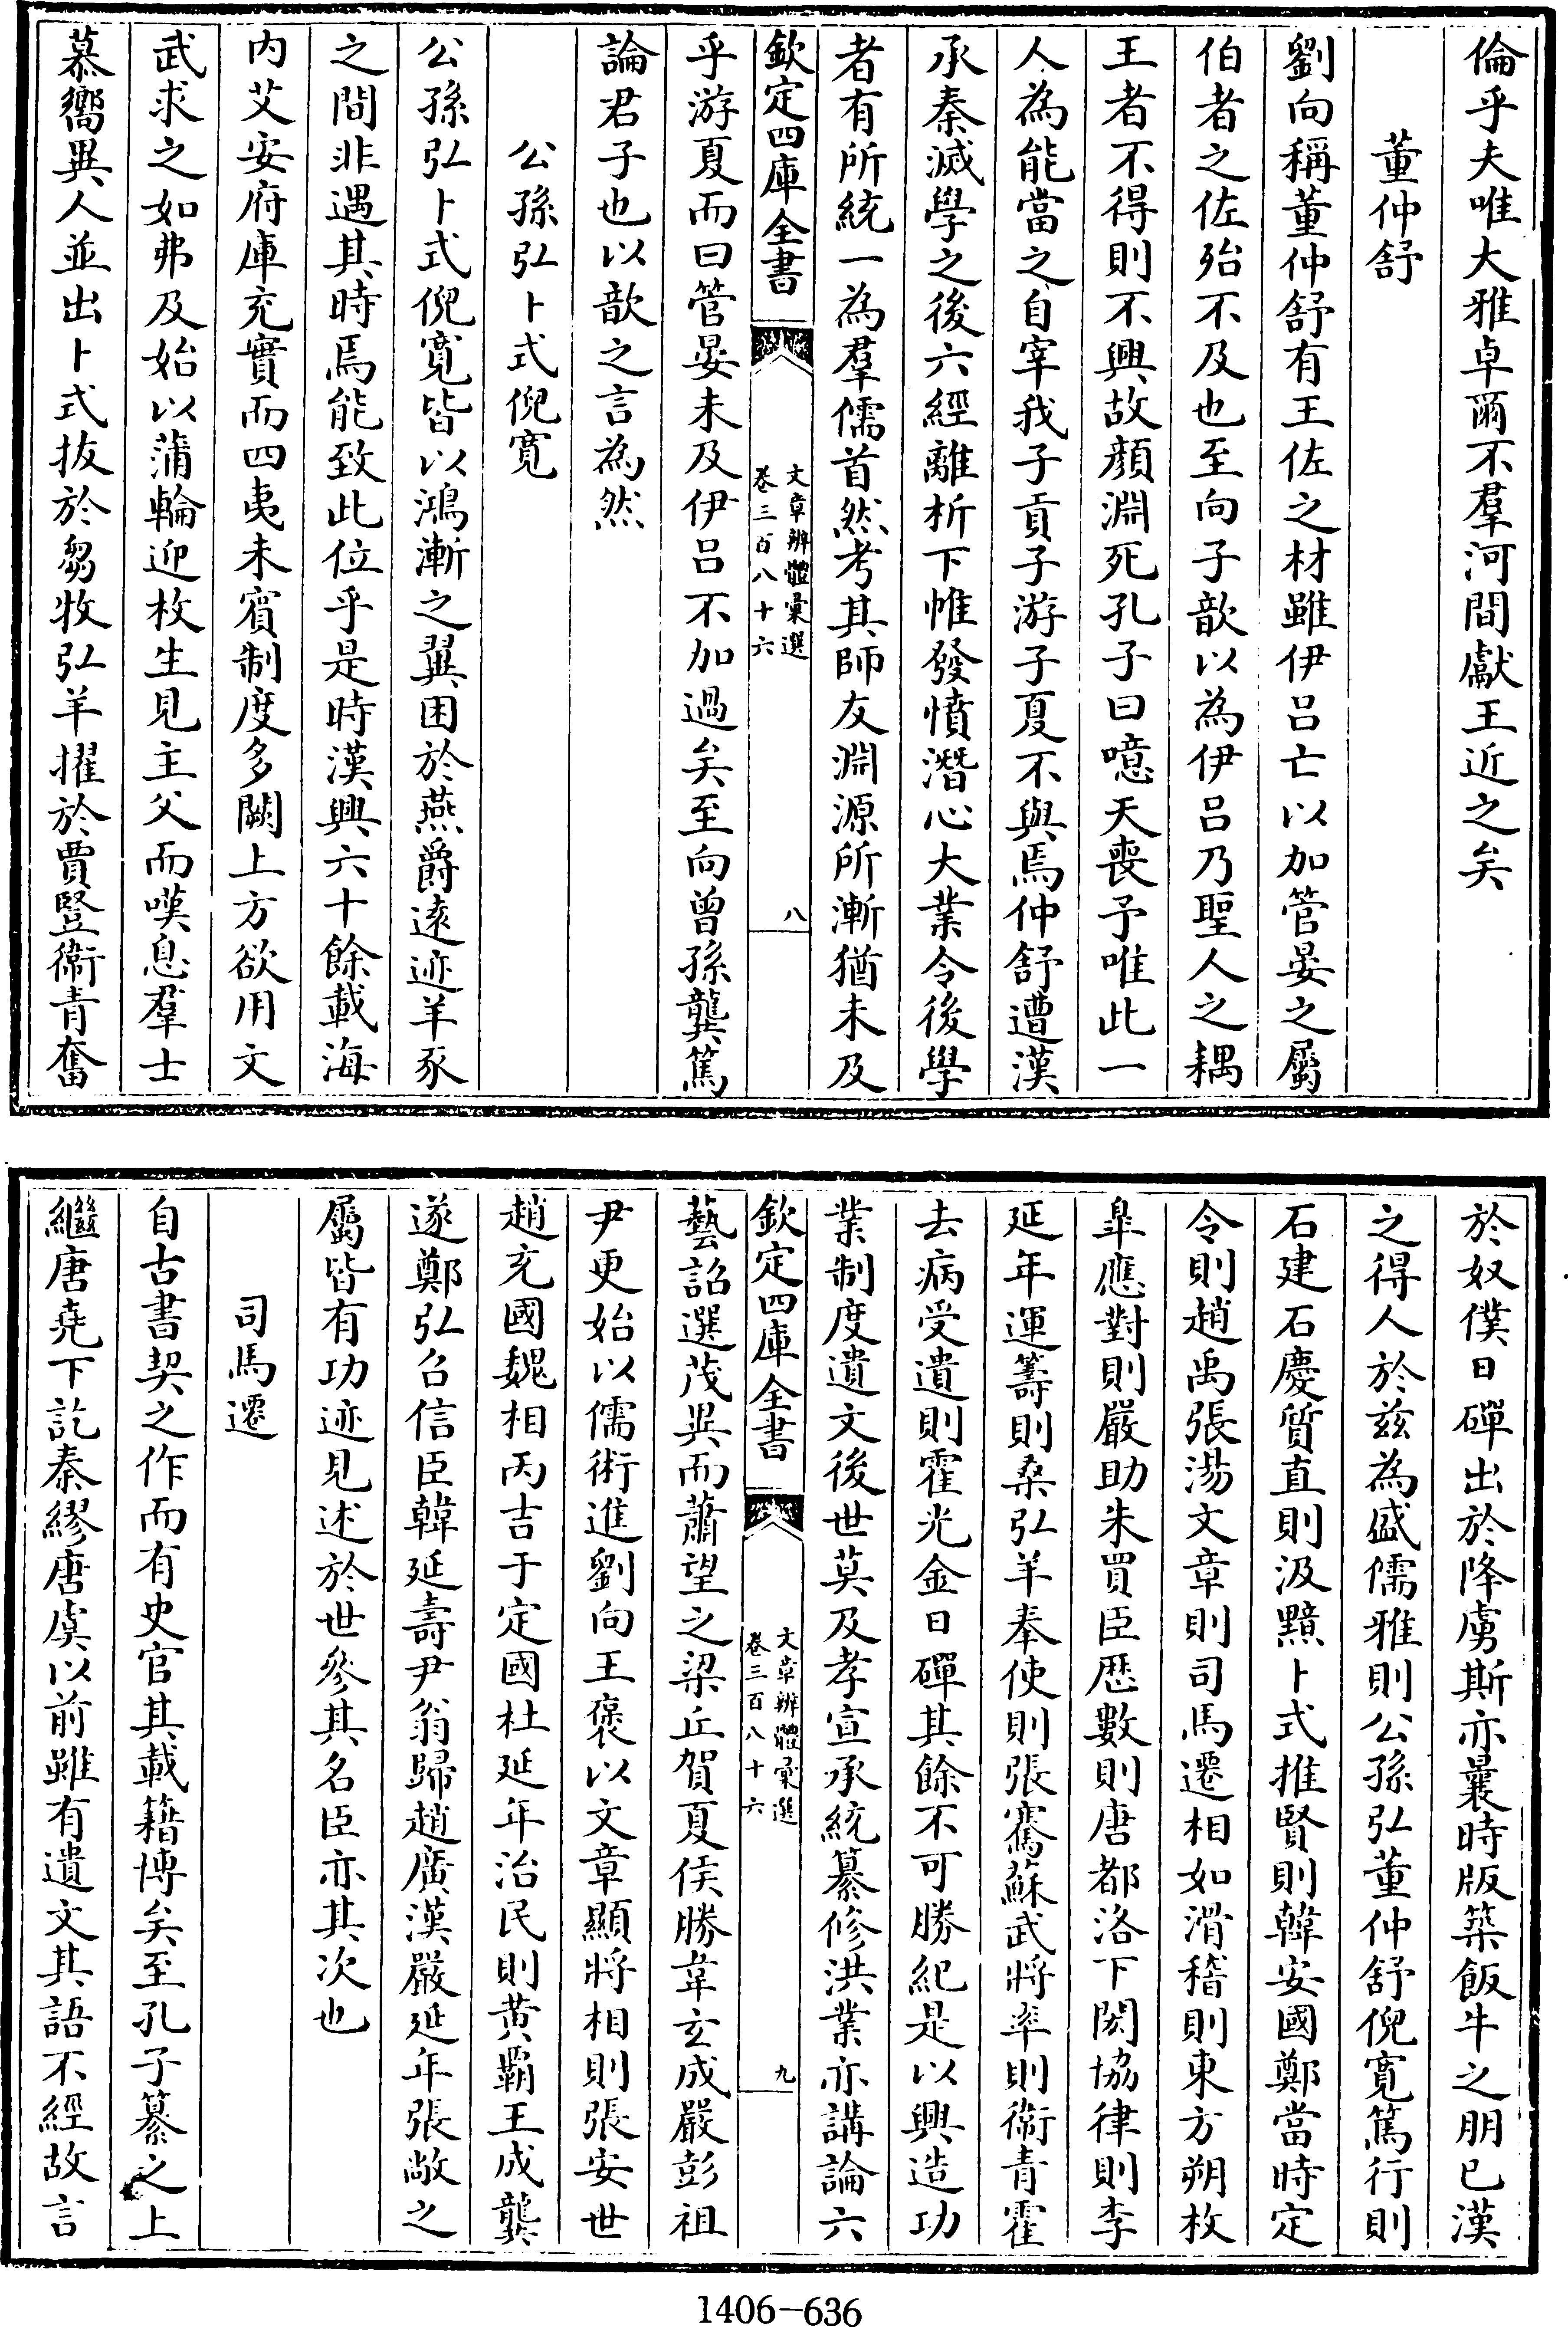 倫乎夫唯大雅卓爾不羣河間獻王近之矣
董仲舒
劉向稱董仲舒有王佐之材雖伊吕亡以加管晏之屬
伯者之佐殆不及也至向子歆以為伊吕乃聖人之耦
王者不得則不興故顔淵死孔子曰噫天喪予唯此一
人為能當之自宰我子貢子游子夏不與焉仲舒遭漢
承秦滅學之後六經離析下帷發憤潛心大業令後學
者有所統一為羣儒首然考其師友淵源所漸猶未及
欽定四庫全書
文章辨體彚選
卷三百八十六
八
乎游夏而曰管晏未及伊吕不加過矣至向曾孫龔篤
論君子也以歆之言為然
公孫弘卜式倪寛
公孫弘卜式倪寛皆以鴻漸之翼困於燕爵逺迹羊豕
之間非遇其時焉能致此位乎是時漢興六十餘載海
内艾安府庫充實而四夷未賓制度多闕上方欲用文
武求之如弗及始以蒲輪迎枚生見主父而嘆息羣士
慕嚮異人並出卜式拔於芻牧弘羊擢於賈豎衞青奮
於奴僕日磾出於降虜斯亦曩時版築飯牛之朋已漢
之得人於兹為盛儒雅則公孫弘董仲舒倪寛篤行則
石建石慶質直則汲黯卜式推賢則韓安國鄭當時定
令則趙禹張湯文章則司馬遷相如滑稽則東方朔枚
臯應對則嚴助朱買臣厯數則唐都洛下閎協律則李
延年運籌則桑弘羊奉使則張騫蘇武將率則衞青霍
去病受遺則霍光金日磾其餘不可勝紀是以興造功
業制度遺文後世莫及孝宣承統纂修洪業亦講論六
欽定四庫全書
文章辨體彚選
卷三百八十六
九
藝詔選茂異而蕭望之梁丘賀夏侯勝韋玄成嚴彭祖
尹更始以儒術進劉向王褒以文章顯將相則張安世
趙充國魏相丙吉于定國杜延年治民則黄霸王成龔
遂鄭弘召信臣韓延壽尹翁歸趙廣漢嚴延年張敞之
屬皆有功迹見述於世參其名臣亦其次也
司馬遷
自古書契之作而有史官其載籍博矣至孔子纂之上
繼唐堯下訖秦繆唐虞以前雖有遺文其語不經故言
1406-636